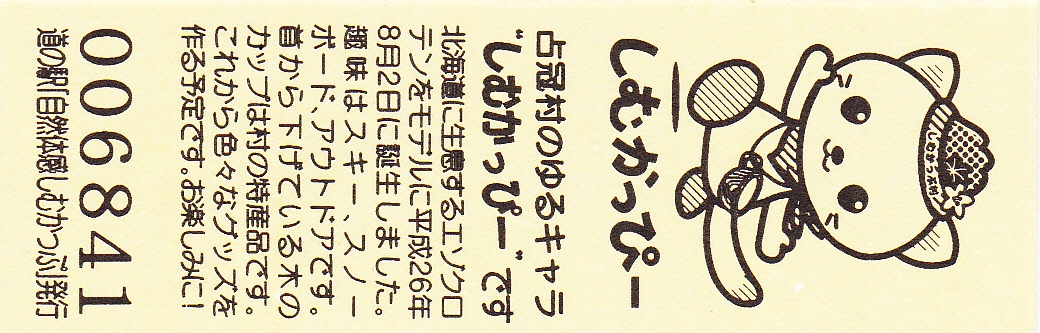 しむかっぷ村
しむかっぴー
占冠村のゆるキャラ
"しむかっぴー"です
北海道に生息するエゾクロ
テンをモデルに平成26年
8月2日に誕生しました。
趣味はスキー、スノー
ボード、アウトドアです。
首から下げている木の
カップは村の特産品です。
これから色々なグッズを
作る予定です。お楽しみに!
006841
道の駅「自然体感しむかっぷ」発行